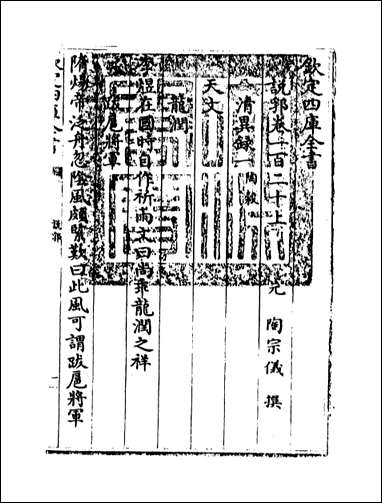 欽定四庫全書
說郛卷一百二十上
元 陶宗儀 撰
清異録 陶縠
天文
龍潤
李煜在國時自作祈雨文曰尚乖龍潤之祥
跋扈將軍
隋煬帝泛舟忽陰風頗緊歎曰此風可謂跋扈將軍